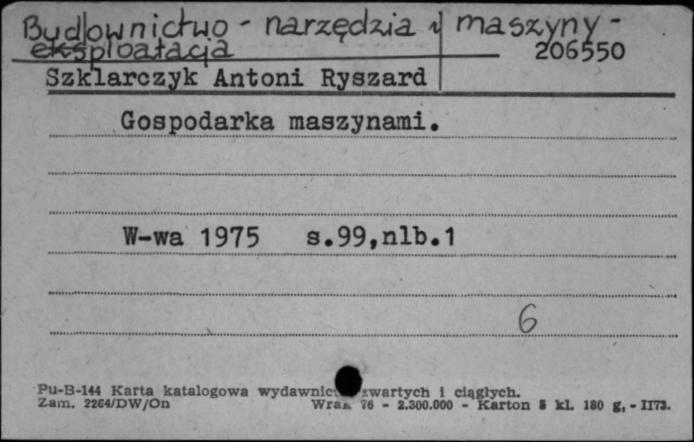 Budownictwo - narzędzia i maszyny -
eksploatacja 206550
Szklarczyk Antoni Ryszard
Gospodarka maszynami.
W-wa 1975 s.99,nlb.1
6
Pu-B-144 Karta katalogowa zwartych i ciągłych.
Zam. 2264/DW/On 76 - 2.300.000 - Karton kl. 180 g, - 1173.